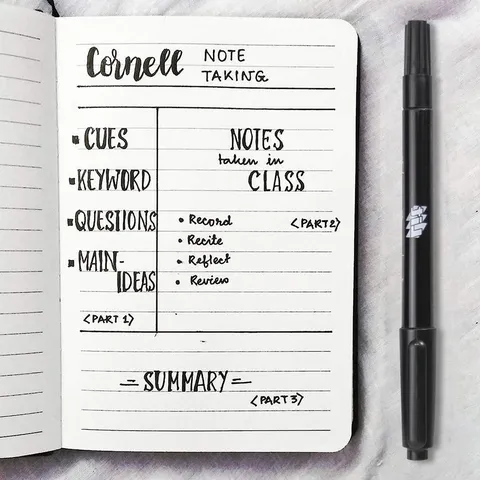 Cornell NOTE
TAKING
CUES
KEYWORD
QUESTIONS
MAIN-
IDEAS
<PART 1>
NOTES
taken in
CLASS
<PART2>
• Record
• Recite
• Reflect
• Review
— SUMMARY —
<PART3>